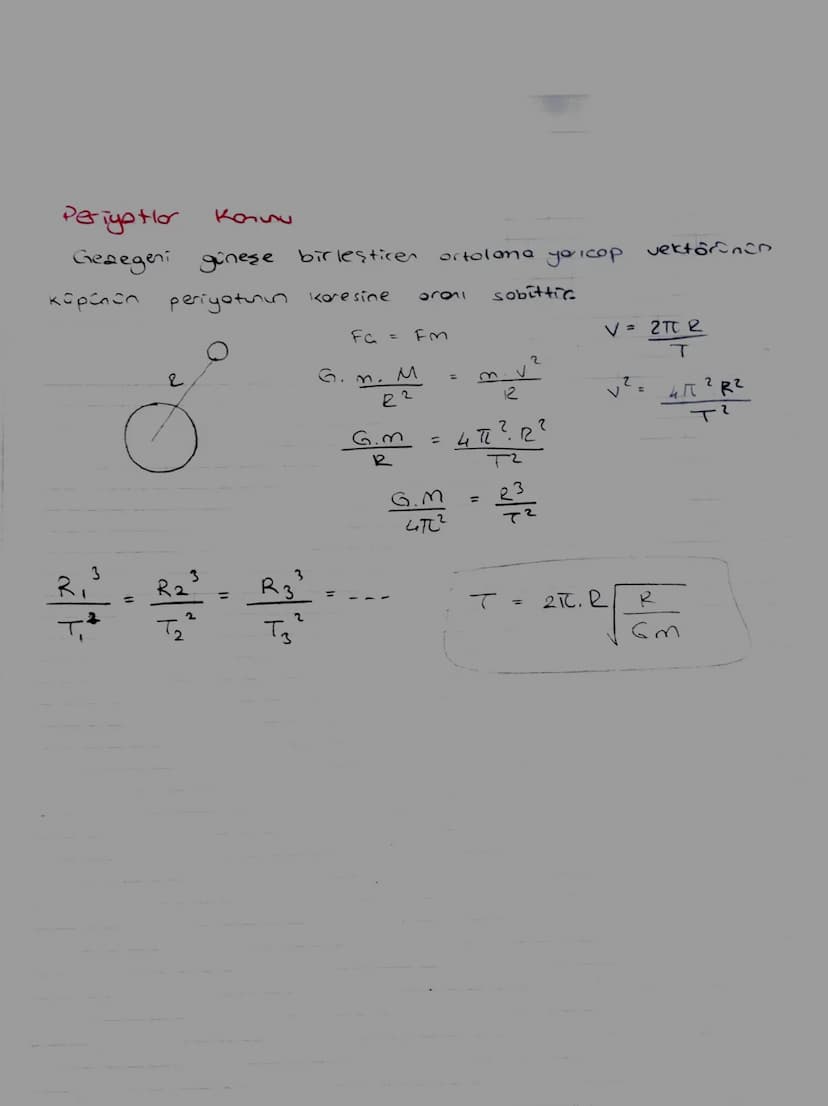 Periyotlar Kanunu
Gezegeni güneşe birleştiren ortalama yarıçap vektörünün
küpünün periyotunun karesine oranı sabittir.
R
FG = Fm
G. m. M / R² = m. V² / R
G.m / R = 4π². R² / T²
G.M / 4π² = R³ / T²
V = 2π R / T
V² = 4π² R² / T²
R₁³ / T₁² = R₂³ / T₂² = R₃³ / T₃² = ---
T = 2π. R √(R / Gm)